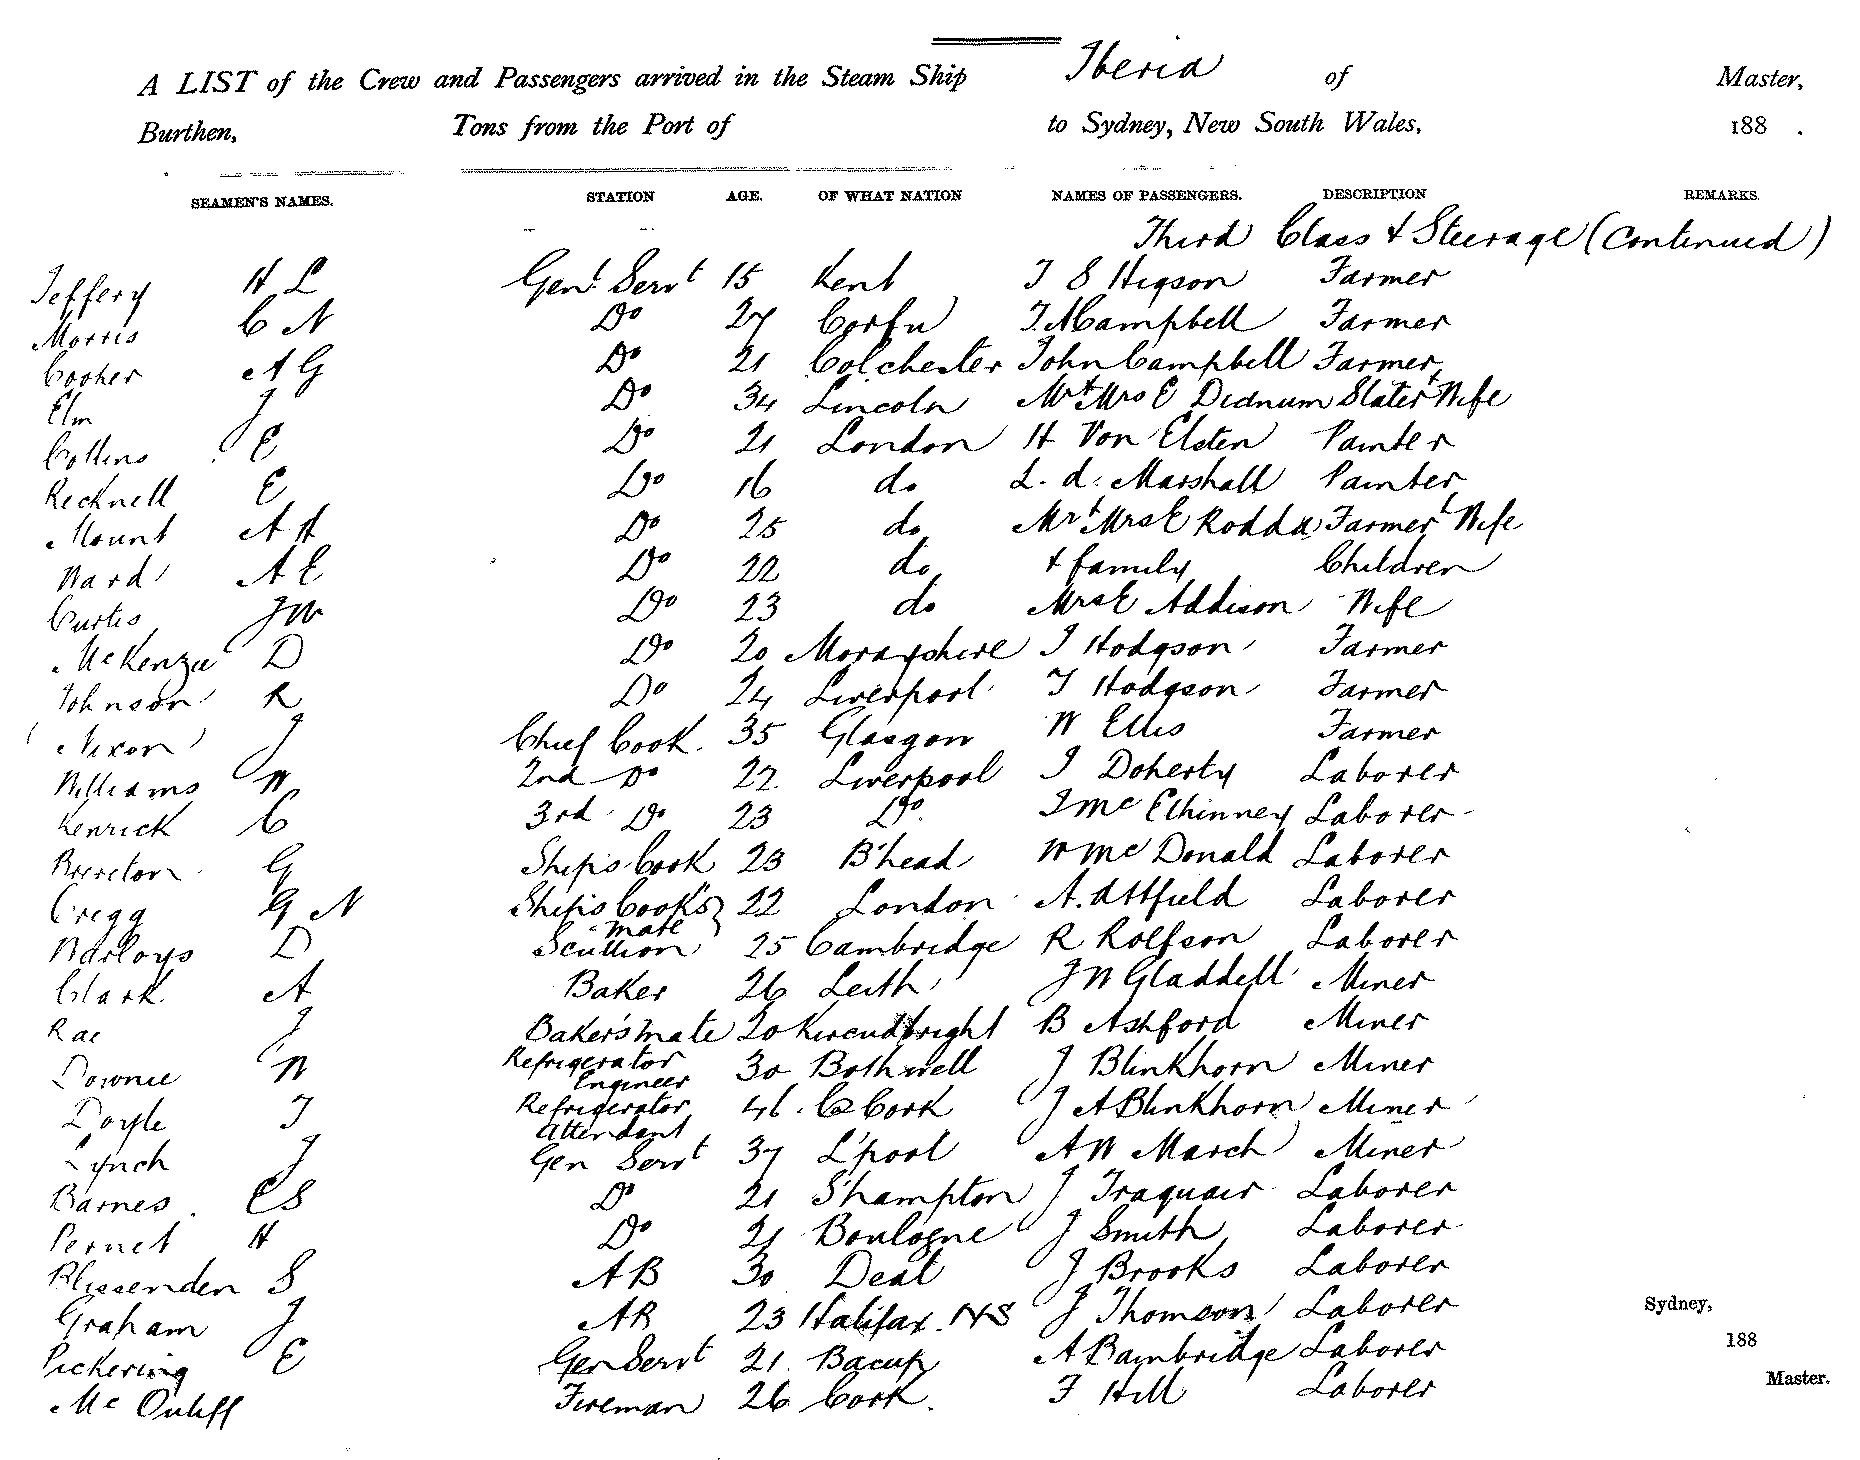 A LIST of the Crew and Passengers arrived in the Steam Ship Iberia of Master,
Burthen, Tons from the Port of to Sydney, New South Wales, 188 .
SEAMEN'S NAMES. STATION AGE. OF WHAT NATION NAMES OF PASSENGERS. DESCRIPTION REMARKS
Third Class & Steerage (Continued)
Jeffery H L Genl Servt 15 Kent J S Higson Farmer
Morris C N Do 27 Corfu J. A Campbell Farmer
Cooker A G Do 21 Colchester John Campbell Farmer
Elm J Do 34 Lincoln Mr & Mrs E Didnum Slater & Wife
Collins E Do 21 London H Von Elsten Painter
Recknell E Do 16 do L. d. Marshall Painter
Mount A H Do 25 do Mr & Mrs E Rodda Farmer & Wife
Ward A E Do 22 do & family Children
Curtis J W Do 23 do Mrs E Addison Wife
McKenzie D Do 20 Morayshire J Hodgson Farmer
Johnson R Do 24 Liverpool T Hodgson Farmer
Nixon J Chief Cook. 35 Glasgow W Ellis Farmer
Williams W 2nd Do 22 Liverpool J Doherty Laborer
Kenrick C 3rd Do 23 Do. J Mc Elhinney Laborer
Brereton G Ship's Cook 23 B'head W Mc Donald Laborer
Gregg G N Ship's Cook's 22 London A. Attfield Laborer
mate
D Scullion 25 Cambridge R Rolfson Laborer
Clark A Baker 26 Leith J W Gladdell Miner
Rae J Baker's mate 20 Kircudbright B Ashford Miner
Downie W Refrigerator 30 Bothwell J Blinkhorn Miner
Engineer
Doyle T Refrigerator 46. Co Cork J A Blinkhorn Miner
Attendant
Lynch J Gen Servt 37 L'pool A W March Miner
Barnes C S Do 21 S'hampton J Traquair Laborer
Pernet H Do 21 Boulogne J Smith Laborer
Blissenden S A B 30 Deal J Brooks Laborer
Graham J AB 23 Halifax. NS J Thomson Laborer
Sydney,
Pickering E Gen Servt 21. Bacup A Bambridge Laborer
188
Mc Fireman 26 Cork. F Hill Laborer
Master.